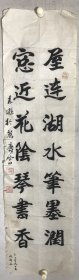 屋連湖水筆墨潤
窓近花陰琴書香